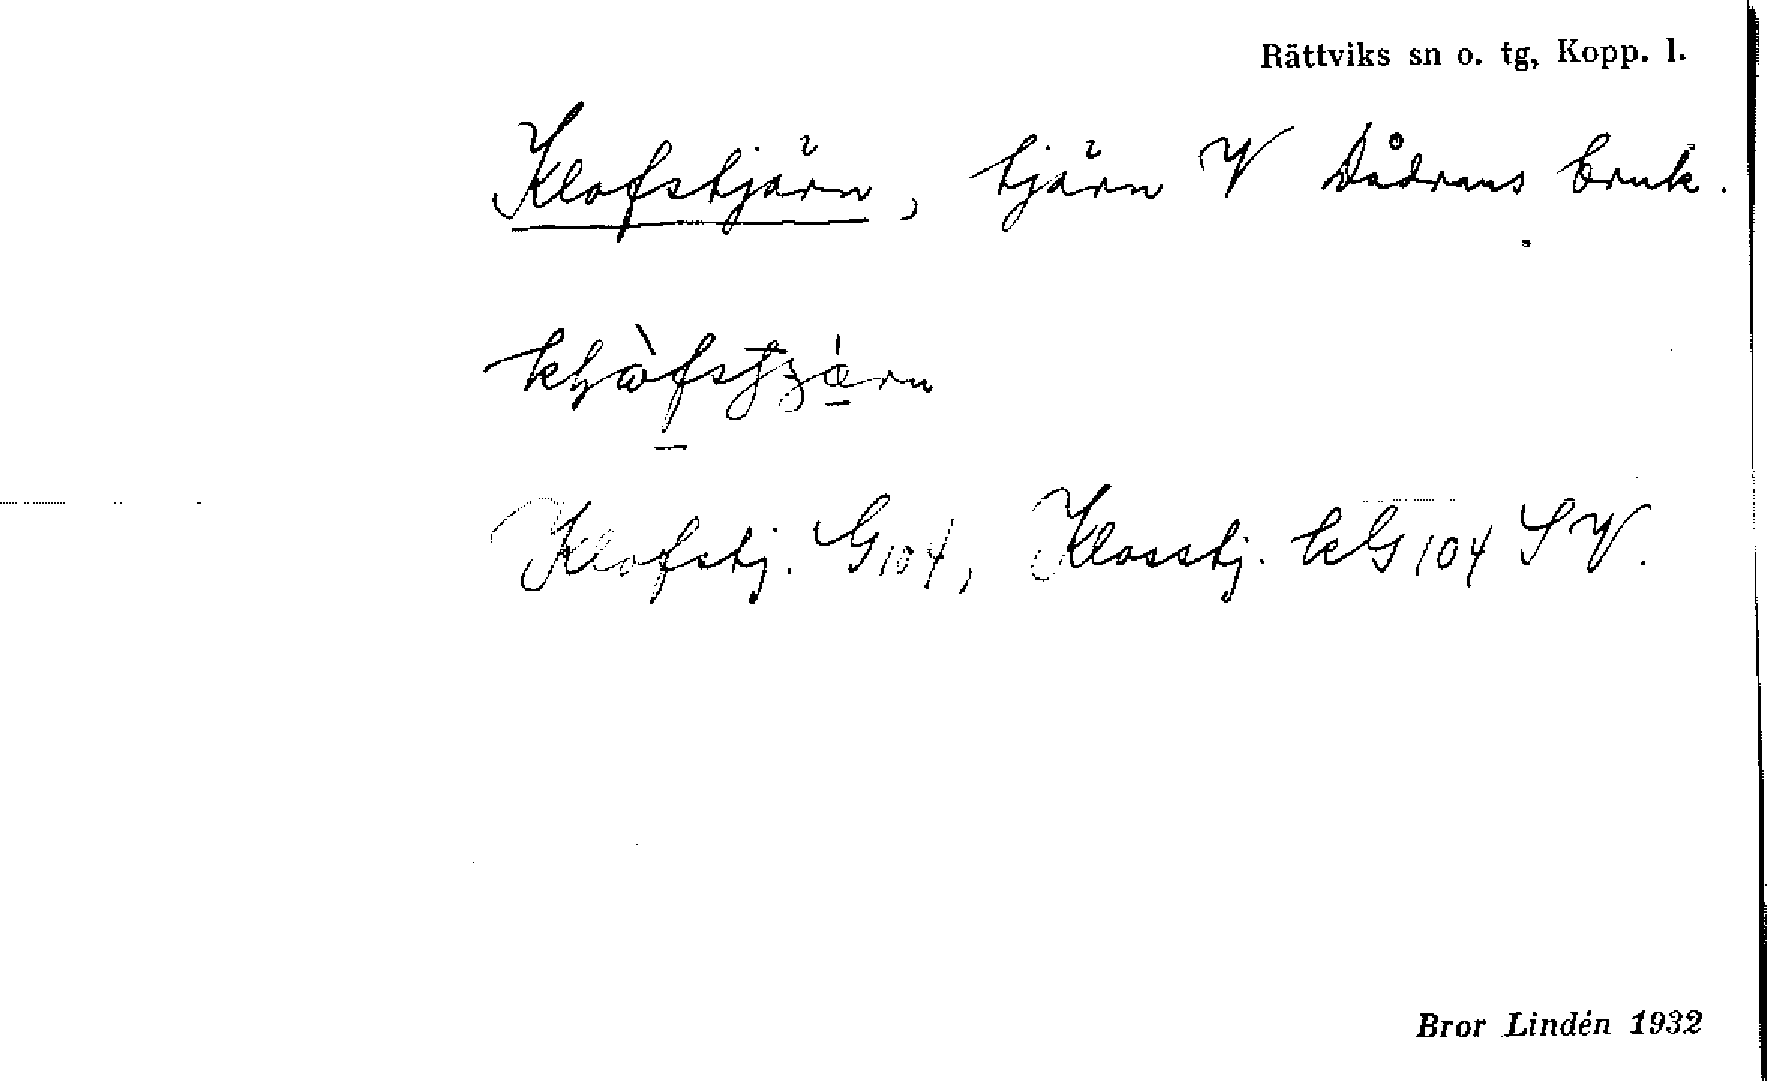 Rättviks sn o. tg, Kopp. l.
Klofstjärn, tjärn V Dådrans bruk.
Klofstj. G104, Klosstj. kG104 SV.
Bror Lindén 1932